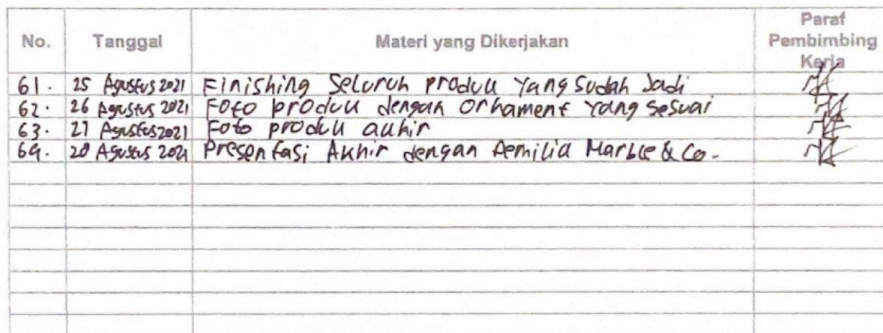 No. Tanggal Materi yang Dikerjakan Paraf Pembimbing Kerja
61. 25 Agustus 2021 Finishing Seluruh produk yang sudah Jadi
62. 26 Agustus 2021 Foto produk dengan Ornament yang sesuai
63. 27 Agustus 2021 Foto produk akhir
64. 28 Agustus 2021 Presentasi Akhir dengan Aemilia Marble & Co.